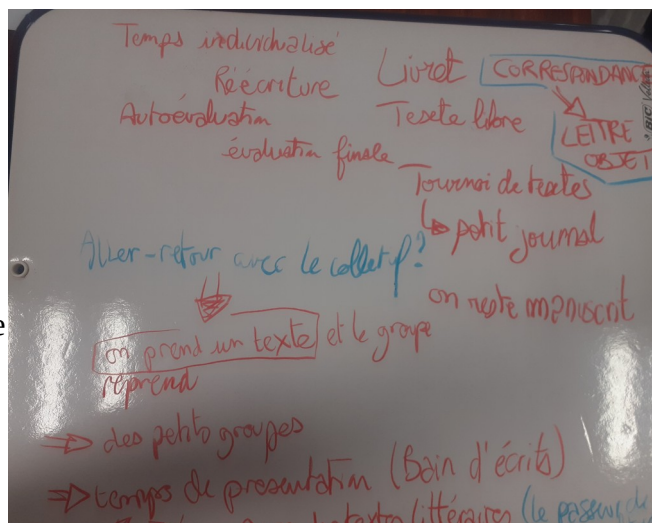 Temps individualisé
Réécriture
Autoévaluation
évaluation finale
Livret
CORRESPONDANCE
LETTRE
OBJET
Texte libre
Tournoi de textes
petit journal
Aller-retour avec le collectif?
on reste manuscrit
on prend un texte et le groupe
reprend
⇒ des petits groupes
⇒ temps de présentation (Bain d'écrits)
textes littéraires (le passeur de
e